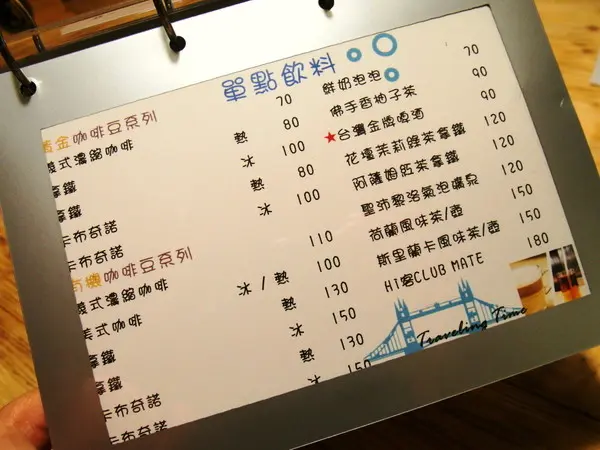 單點飲料
黃金咖啡豆系列
義式濃縮咖啡 70
拿鐵 熱 80
拿鐵 冰 100
卡布奇諾 熱 80
卡布奇諾 冰 100
有機咖啡豆系列
義式濃縮咖啡 110
美式咖啡 冰/熱 100
拿鐵 熱 130
拿鐵 冰 150
卡布奇諾 熱 130
卡布奇諾 冰 150
鮮奶泡泡 70
佛手香柚子茶 90
★台灣金牌啤酒 90
花壇茉莉綠茶拿鐵 120
阿薩姆紅茶拿鐵 120
聖沛黎洛氣泡礦泉 120
荷蘭風味茶/壺 150
斯里蘭卡風味茶/壺 150
HI客CLUB MATE 180
Traveling Time